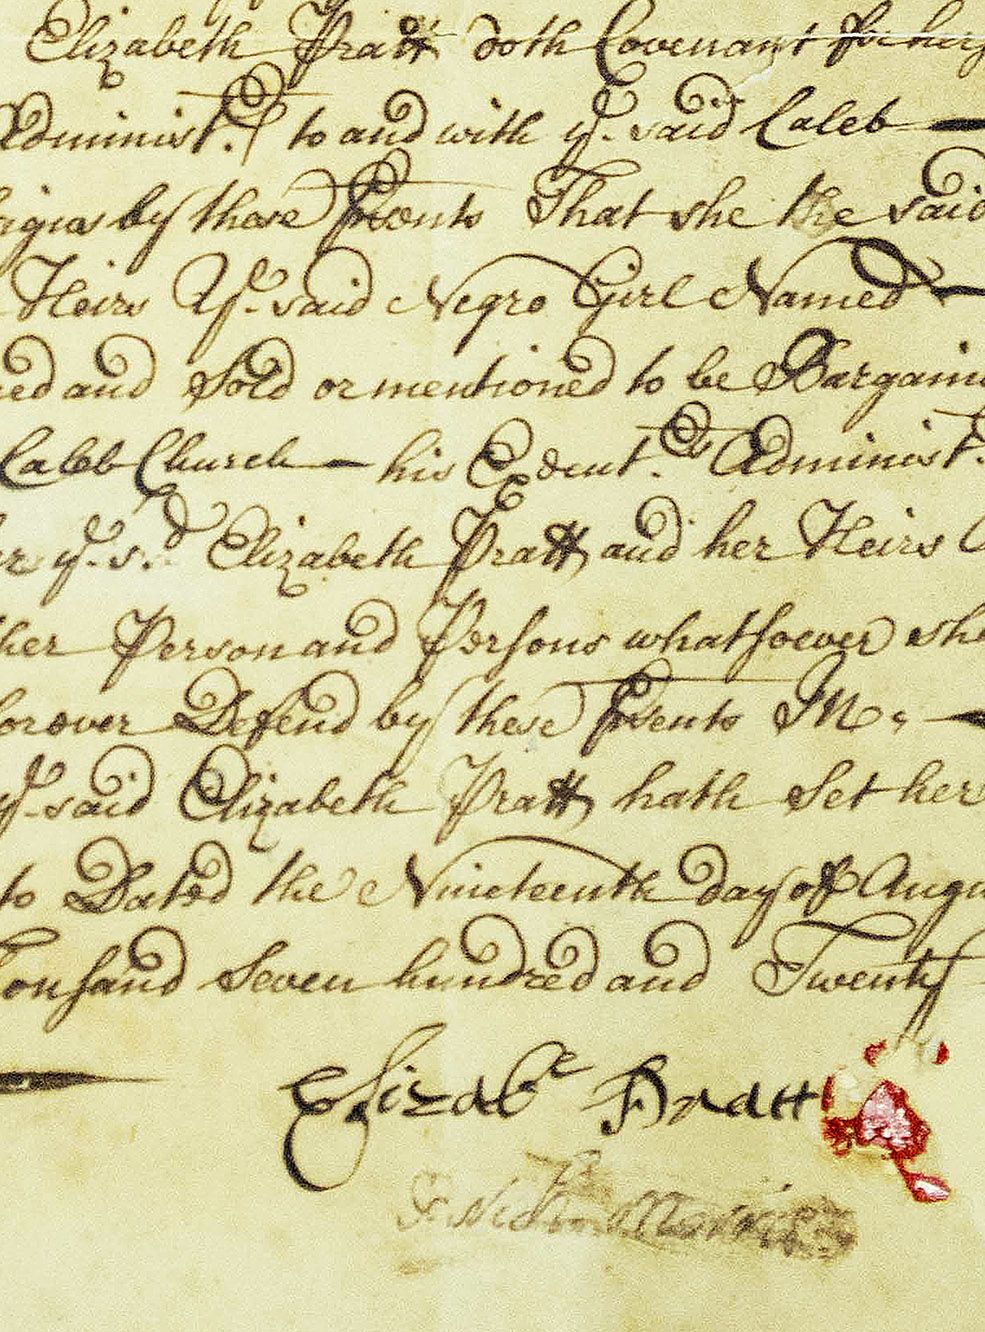 Elizabeth Pratt doth Covenant for hers
Administ.rs to and with ye. said Caleb —
signs by these Presents That she the said
Heirs Ye. said Negro Girl Named —
ned and Sold or mentioned to be Bargaine
Caleb Church — his Execut.rs Administ.
er ye. s.d Elizabeth Pratt and her Heirs
ther Person and Persons whatsoever she
forever Defend by these Presents In
ye. said Elizabeth Pratt hath Set her
to Dated the Nineteenth day of Augu
ousand Seven hundred and Twenty
Elizabe Pratt